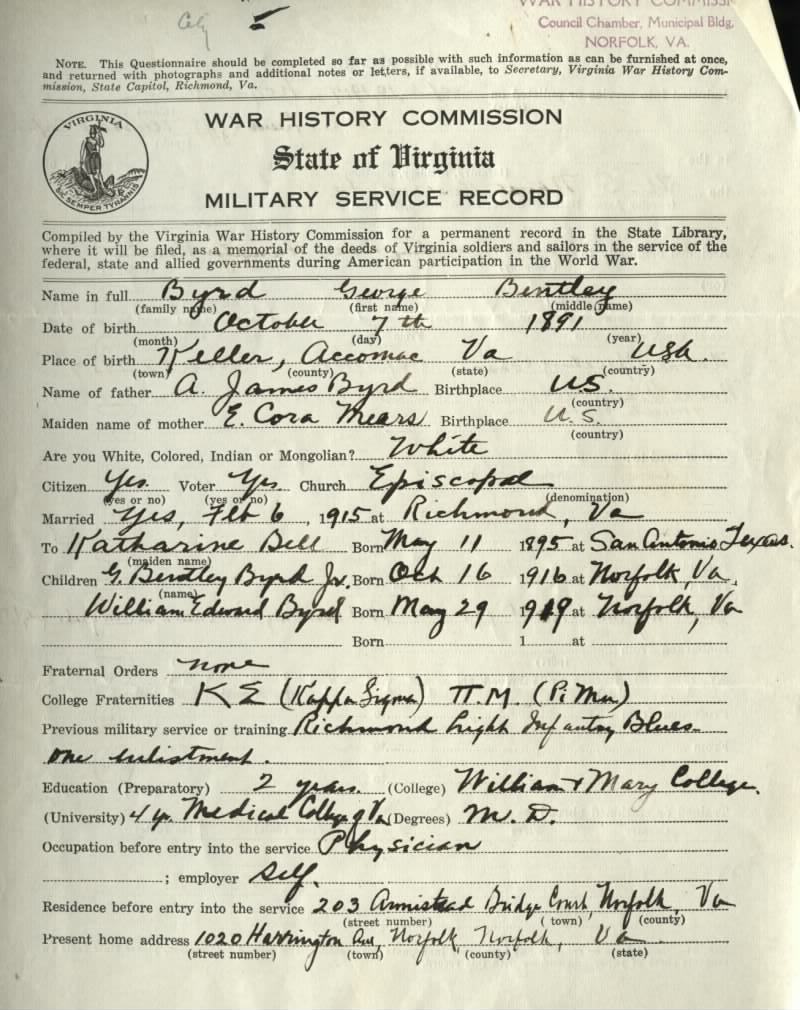 WAR HISTORY COMMISSI
Council Chamber, Municipal Bldg,
NORFOLK, VA.
NOTE. This Questionnaire should be completed so far as possible with such information as can be furnished at once,
and returned with photographs and additional notes or letters, if available, to Secretary, Virginia War History Com-
mission, State Capitol, Richmond, Va.
VIRGINIA
SIC SEMPER TYRANNIS
WAR HISTORY COMMISSION
State of Virginia
MILITARY SERVICE RECORD
Compiled by the Virginia War History Commission for a permanent record in the State Library,
where it will be filed, as a memorial of the deeds of Virginia soldiers and sailors in the service of the
federal, state and allied governments during American participation in the World War.
Name in full Byrd George Bentley
(family name) (first name) (middle name)
Date of birth October 7th 1891
(month) (day) (year)
Place of birth Keller, Accomac Va USA.
(town) (county) (state) (country)
Name of father A. James Byrd Birthplace U.S.
(country)
Maiden name of mother E. Cora Mears Birthplace U.S.
(country)
Are you White, Colored, Indian or Mongolian? White
Citizen Yes. Voter Yes. Church Episcopal
(yes or no) (yes or no) (denomination)
Married Yes, Feb 6, 1915 at Richmond, Va
To Katharine Bell Born May 11 1895 at San Antonio Texas.
(maiden name)
Children G. Bentley Byrd Jr. Born Oct 16 1916 at Norfolk, Va,
(name)
William Edward Byrd Born May 29 1919 at Norfolk, Va
Born 1 at
Fraternal Orders none
College Fraternities K Σ (Kappa Sigma) π M (Pi Mu)
Previous military service or training Richmond Light Infantry Blues
one enlistment.
Education (Preparatory) 2 years. (College) William & Mary College.
(University) 4 yr. Medical College of Va (Degrees) M. D.
Occupation before entry into the service Physician
; employer Self.
Residence before entry into the service 203 Armistead Bridge Court, Norfolk, Va
(street number) (town) (county)
Present home address 1020 Harrington Ave, Norfolk, Norfolk, Va
(street number) (town) (county) (state)